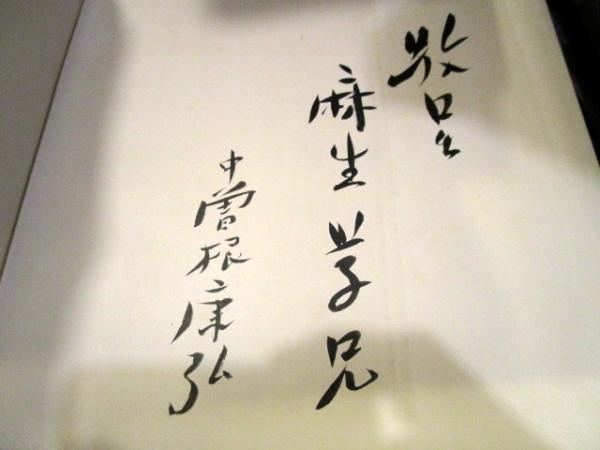 敬呈
麻生学兄
中曽根康弘